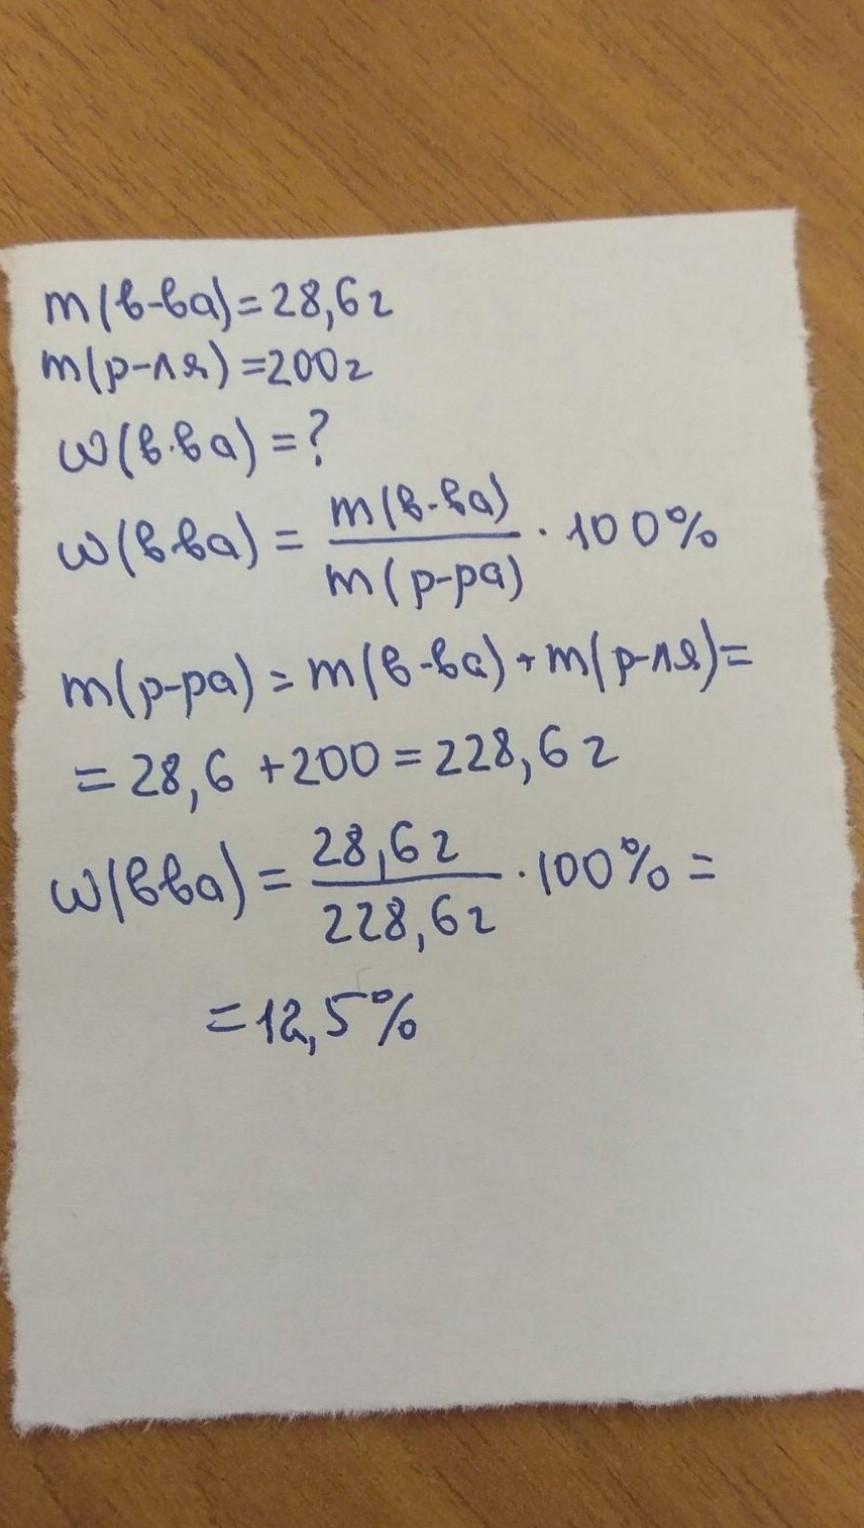 m(в-ва)=28,6г
m(р-ля)=200г
w(в-ва)=?
w(в-ва) = m(в-ва) / m(р-ра) · 100%
m(р-ра) = m(в-ва) + m(р-ля) =
= 28,6 + 200 = 228,6 г
w(вва) = 28,6г / 228,6г · 100% =
= 12,5%